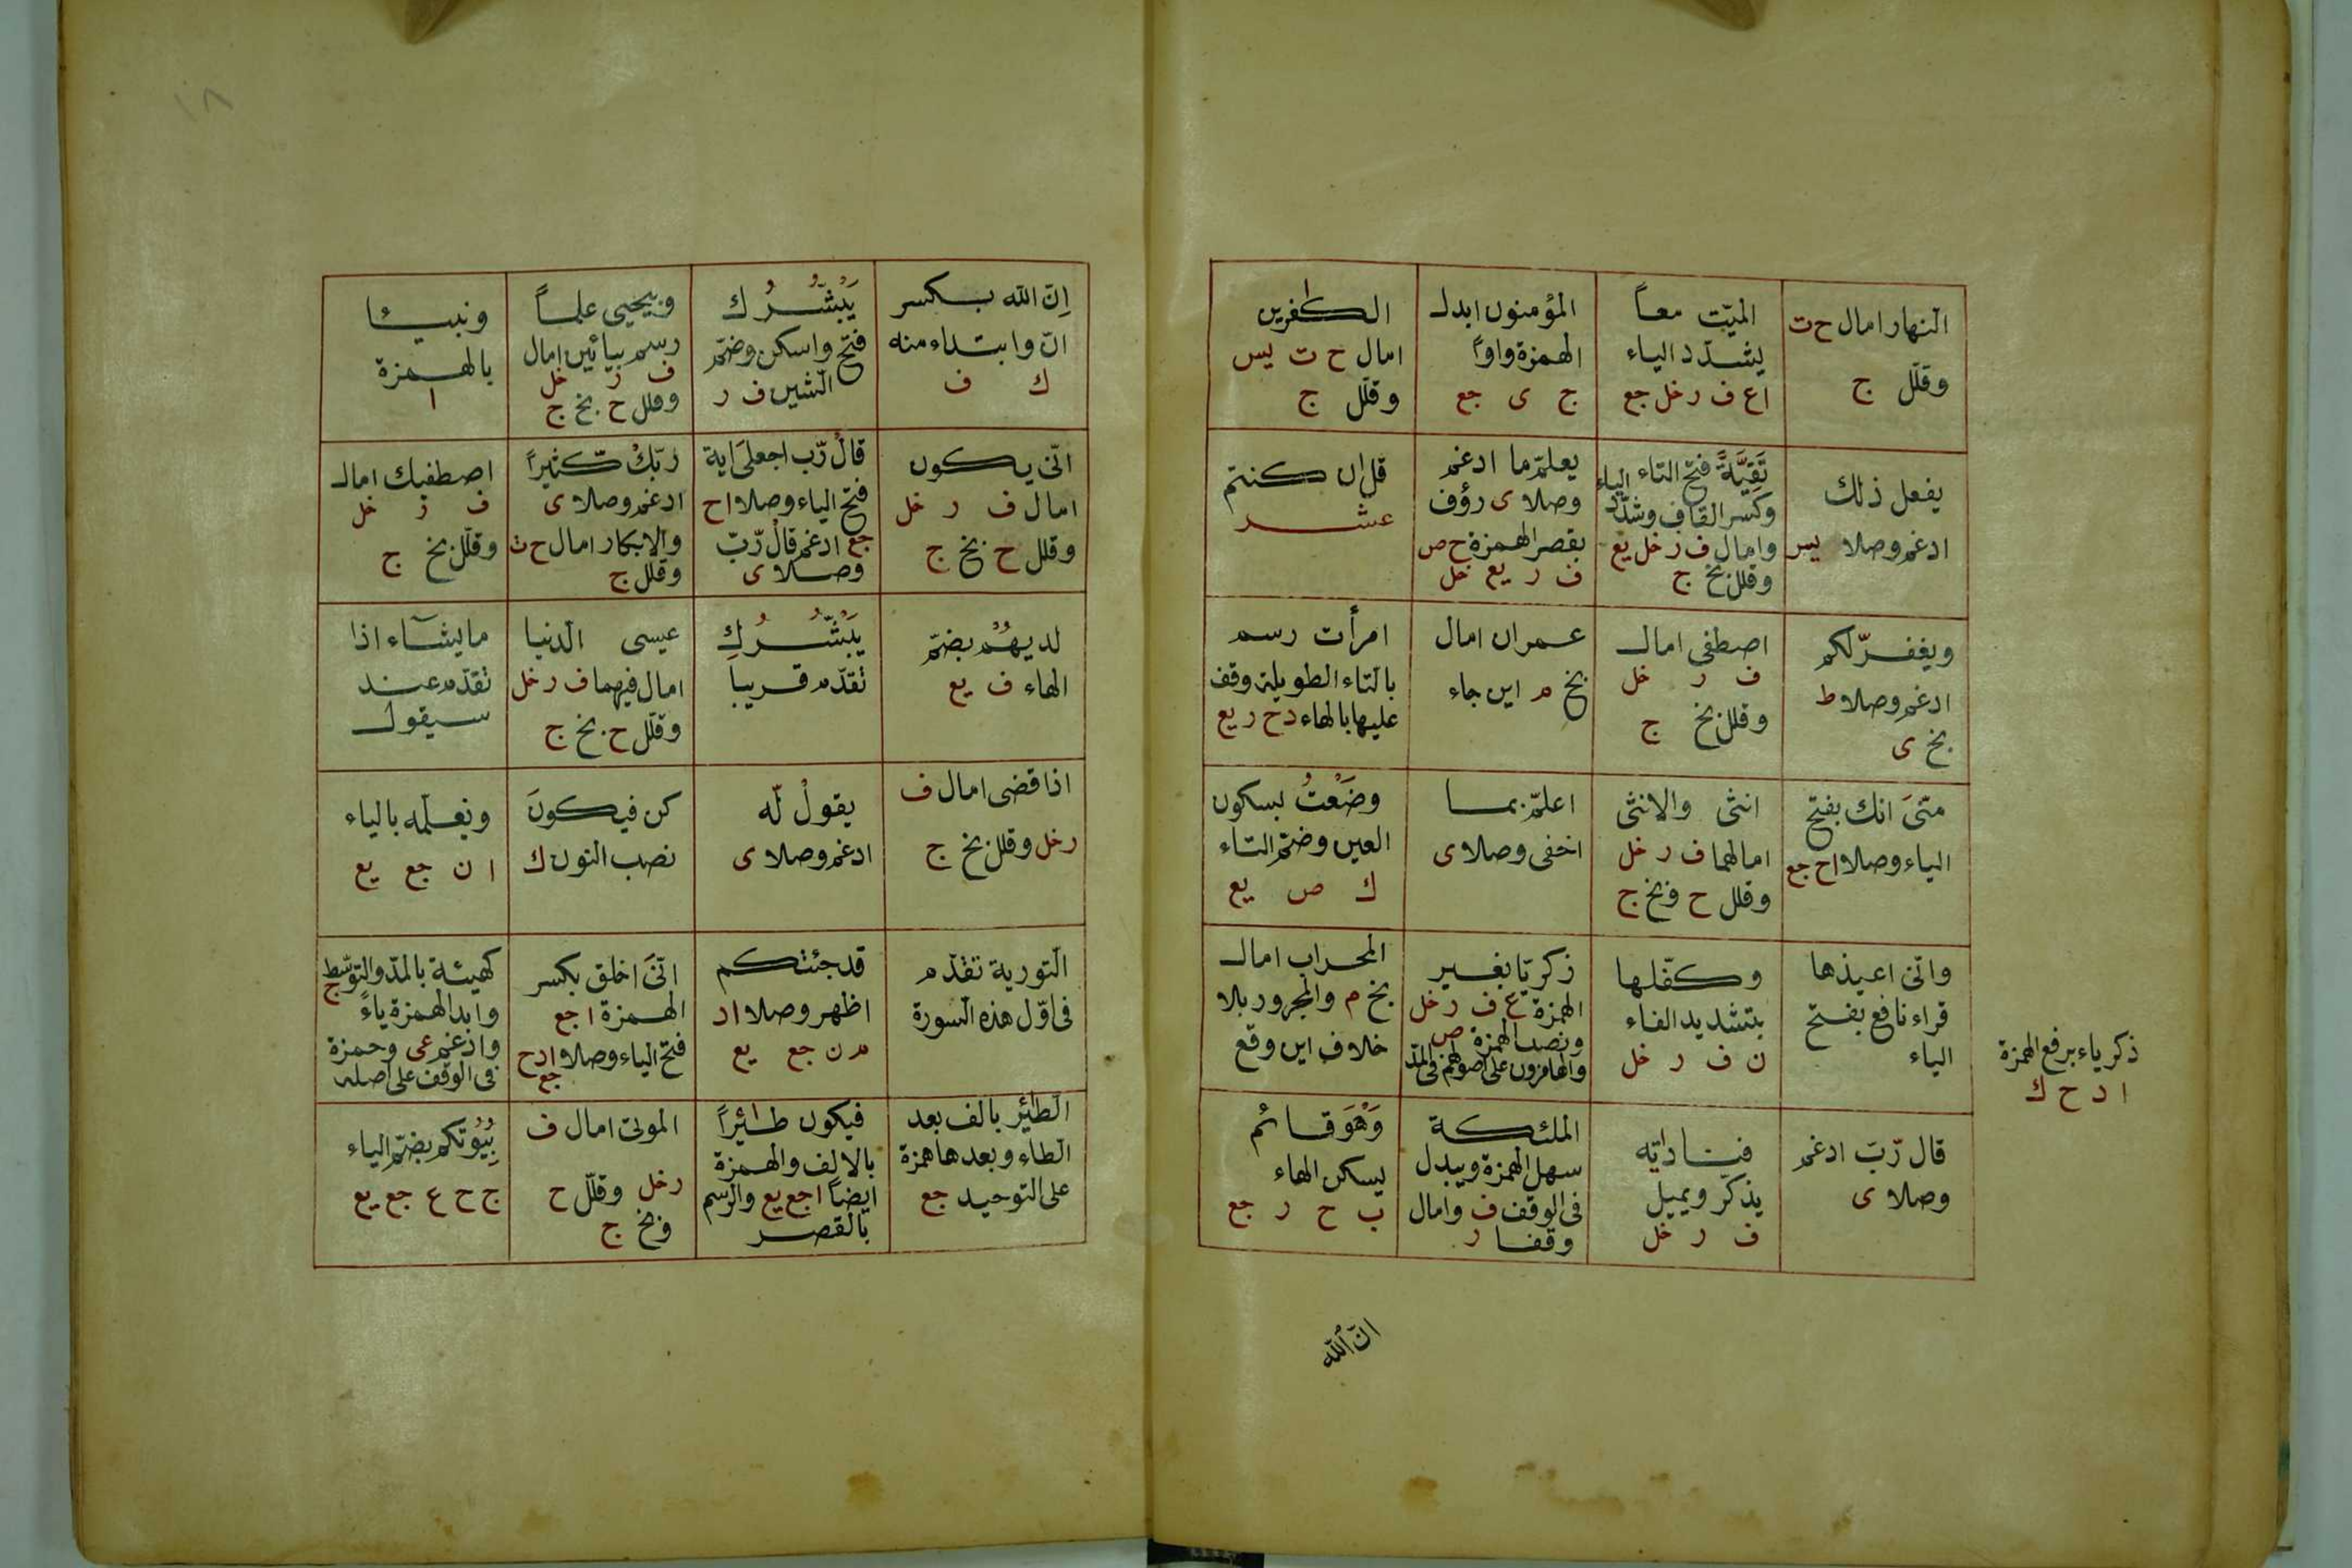 النهار امال ح ت
وقلّل ج
الميّت معاً
يشدّد الياء
ا ع ف ر خل جع
المؤمنون ابدل
الهمزة واواً
ج ى جع
الكفرين
امال ح ت يس
وقلّل ج
يفعل ذلك
ادغم وصلا يس
تَقِيَّةً فتح التاء
وكسر القاف وشدّد الياء
وامال ف ر خل يع
وقلل بخ ج
يعلمّ ما ادغم
وصلا ى رؤف
بقصر الهمزة ح ص
ف ر يع خل
قل ان كنتم
عشر
ويغفر لّكم
ادغم وصلا ط
بخ ى
اصطفى امال
ف ر خل
وقلل بخ ج
عمران امال
بخ م اين جاء
امرأت رسم
بالتاء الطويلة وقف
عليها بالهاء د ح ر يع
منّىَ انك بفتح
الياء وصلا ا ح جع
انثى والانثى
امالهما ف ر خل
وقلل ح وبخ ج
اعلمّ بما
اخفى وصلا ى
وضَعْتُ بسكون
العين وضمّ التاء
ك ص يع
وانّى اعيذها
قراء نافع بفتح
الياء
وكفّلها
بتشديد الفاء
ن ف ر خل
زكريّا بغير
الهمزة ع ف ر خل
ونصب الهمزة ص
والهامزون على اصولهم فى المدّ
المحراب امال
بخ م والمجرور بلا
خلاف اين وقع
ذكرياء برفع الهمزة
ا د ح ك
قال رّبّ ادغم
وصلا ى
فناداته
يذكّر ويميل
ف ر خل
الملئكة
سهل الهمزة ويبدل
فى الوقف ف وامال
وقفا ر
وَهْوَ قائم
يسكن الهاء
ب ح ر جع
انّ الله
اِنّ الله بكسر
انّ وابتداء منه
ك ف
يَبْشُرُك
فتح واسكن وضمّ
الشين ف ر
وبيحيى علماً
رسم بيائين امال
ف ر خل
وقلل ح بخ ج
ونبيئا
بالهمزة
ا
انّى يكون
امال ف ر خل
وقلل ح بخ ج
قالْ رّب اجعلىَ اية
فتح الياء وصلا ا ح
جع ادغم قالْ رّبّ
وصلا ى
ربّكْ كّثيراً
ادغم وصلا ى
والابكار امال ح ت
وقلل ج
اصطفيك امال
ف ر خل
وقلّل بخ ج
لديهُم بضمّ
الهاء ف يع
يَبْشُرُكِ
تقدّم قريباً
عيسى الدنيا
امال فيهما ف ر خل
وقلّل ح بخ ج
ما يشآء اذا
تقدّم عند
سيقول
اذا قضى امال ف
ر خل وقلل بخ ج
يقولْ لّه
ادغم وصلا ى
كن فيكونَ
نصب النون ك
ويعلّمه بالياء
ا ن جع يع
التورية تقدّم
فى اوّل هذه السورة
قد جئتكم
اظهر وصلا ا د
م ن جع يع
انّىَ اخلق بكسر
الهمزة ا جع
فتح الياء وصلا ا د ح
جع
كهيئة بالمدّ والتوسّط ج
وابد الهمزة ياءً
وادغم عى وحمزة
فى الوقف على اصله
الطٰئر بالف بعد
الطاء وبعدها همزة
على التوحيد جع
فيكون طٰئراً
بالالف والهمزة
ايضاً ا جع يع والرسم
بالقصر
الموتى امال ف
ر خل وقلّل ح
وبخ ج
بِيُوتكم بضمّ الياء
ج ح ع جع يع
١٨